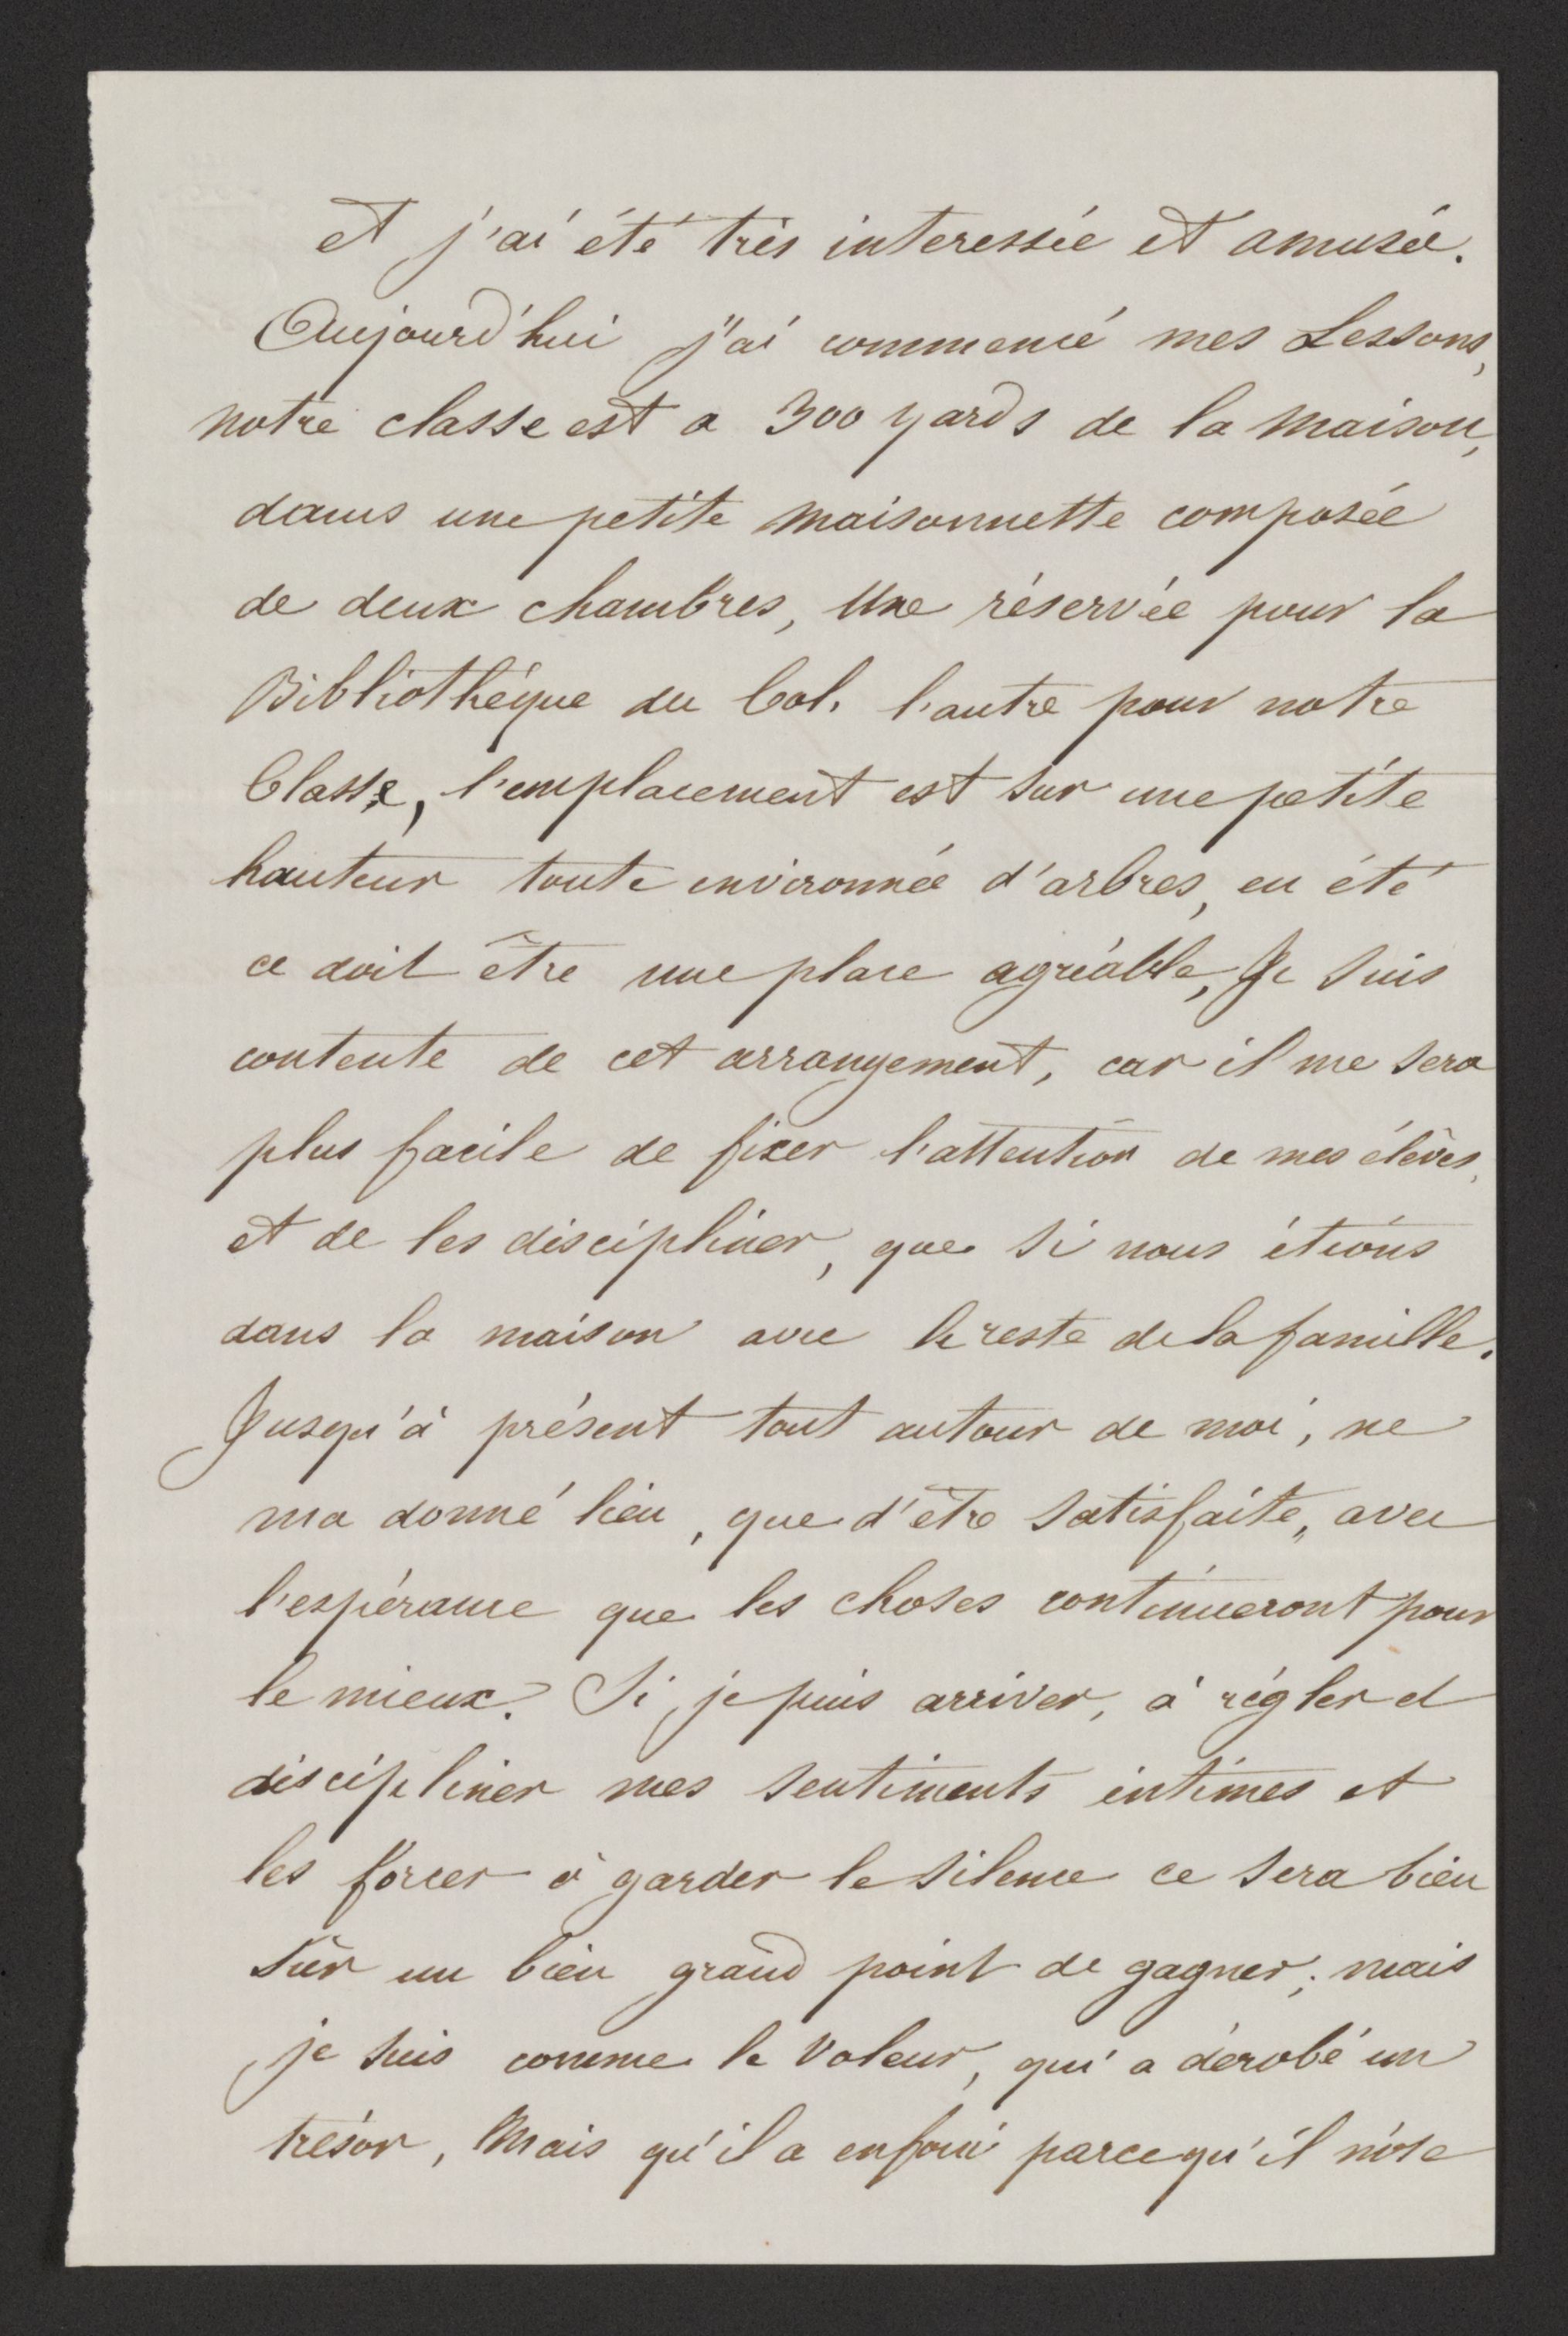 et j'ai été très interessée et amusée.
Aujourd'hui j'ai commencé mes Lessons,
notre classe est a 300 yards de la maison,
dans une petite maisonnette composée
de deux chambres, Une réservée pour la
Bibliothéque du Col. l'autre pour notre
Classe, l'emplacement est sur une petite
hauteur toute environnée d'arbres, en été
ce doit être une place agréable, Je suis
contente de cet arrangement, car il me sera
plus facile de fixer l'attention de mes élèves,
et de les discipliner, que si nous étions
dans la maison avec le reste de la famille.
Jusqu'à présent tout autour de moi, ne
ma donné lieu, que d'être satisfaite, avec
l'espérance que les choses continueront pour
le mieux. Si je puis arriver, à régler et
discipliner mes sentiments intimes et
les forcer à garder le silence ce sera bien
sûr un bien grand point de gagner; mais
je suis comme le voleur, qui a dérobé un
trésor, Mais qu'il a enfoui parcequ'il n'ose